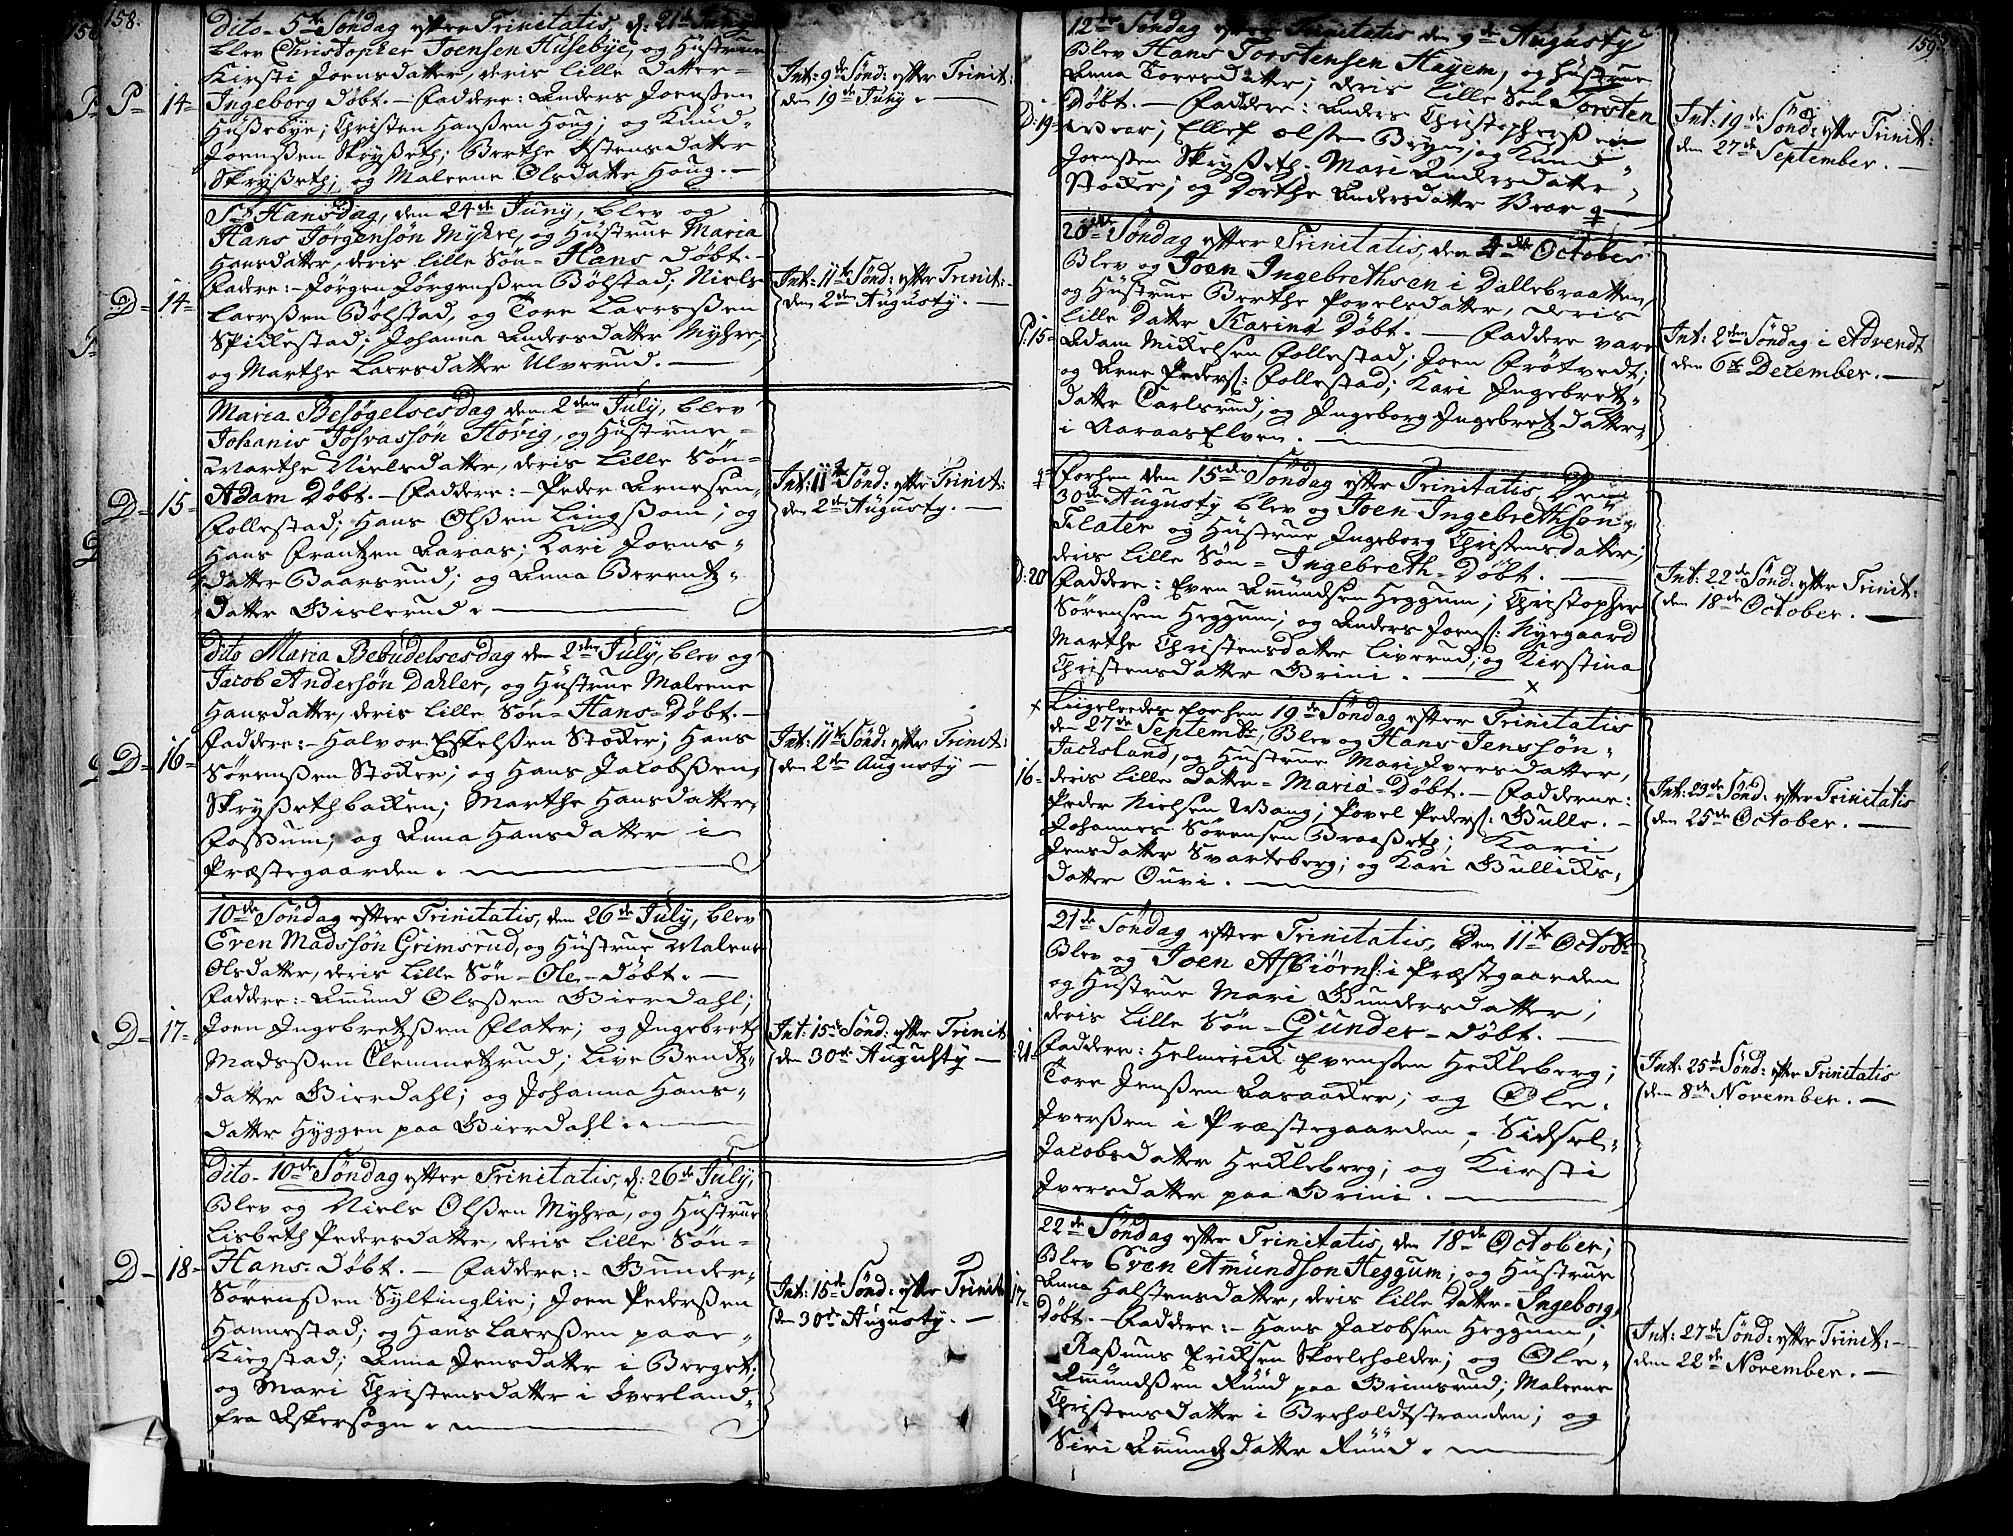 158.
Dito- 5te Søndag efter Trinitatis, d: 21de Juny
blev Christopher Joensen Husebye, og Hustrue
Kirsti Joensdatter, deris lille Datter=
P= 14= Ingeborg Døbt. — Faddere: Anders Joenssen
Hussebye; Christen Hanssen Houg; og Knud=
Joenssen Skrysseth; Berthe Astensdatter
Skrysseth; og Maleene Olsdatter Houg. —
Int: 9de Sønd: efter Trinit:
den 19de July. —
St Hansdag, den 24de Juny, blev og
Hans Jørgensøn Myhre, og Hustrue Maria
Hansdatter, deris lille Søn= Hans Døbt. —
Fadere:- Jørgen Jørgenssen Bølstad; Niels
D= 14= Larssen Bølstad, og Tore Larssen
Spickestad; Johanna Andersdatter Myhre;
og Marthe Larsdatter Ulverud. —
Int: 11te Sønd: efter Trinit:
den 2den Augusty. —
Maria Besøgelsesdag den 2den July, blev
Johanis Josvassøn Hovig, og Hustrue=
Marthe Nielsdatter, deris lille Søn=
D= 15= Adam Døbt. — Faddere:- Peder Arnesen
Follestad; Hans Olssen Lingssom; og
Hans Frantzen Aaraas; Kari Joens=
datter Baarsrud; og Anna Berentz=
datter Bislerud. —
Int: 11te Sønd: efter Trinit:
den 2de Augusty. —
Dito Maria Bebudelsesdag den 2den July, blev og
Jacob Andersøn Dahler, og Hustrue Maleene
Hansdatter, deris lille Søn= Hans= Døbt. —
D= 16= Faddere:- Halvor Eskelssen Stocker; Hans
Sørenssen Stocker; og Hans Jacobssen
Skryssethbacken; Marthe Hansdatter
Fossum; og Anna Hansdatter i
Præstegaarden. —
Int: 11te Sønd: efter Trinit:
den 2den Augusty —
10de Søndag efter Trinitatis, den 26de July, blev
Even Madssøn Grimsrud, og Hustrue Maleene
Olsdatter, deris lille Søn= Ole= Døbt. —
Faddere:- Amund Olssen Bierdahl;
D= 17= Joen Ingebretzssen Flater; og Ingebreth
Madssen Clemmetzrud; Live Bendtz=
datter Bierdahl; og Johanna Hans=
datter Hyggen paa Bierdahl. —
Int: 15de Sønd: efter Trinit
den 30te Augusty —
Dito- 10de Søndag efter Trinitatis, d: 26de July,
Blev og Niels Olssen Myhra, og Hustrue
Lisbeth Pedersdatter, deris lille Søn=
D= 18= Hans= Døbt. — Faddere:- Gunder=
Sørenssen Syltinglie; Joen Pederssen
Hannestad; og Hans Larssen paa
Kirgstad; Anna Jensdatter i Berget;
og Mari Christensdatter i Øverland
fra Askersogn. —
Int: 15de Sønd: efter Trinit
den 30te Augusty. —
159.
12te Søndag efter Trinitatis den 9de Augusty
Blev Hans Torstensen Hayem, og Hustrue
Anna Toresdatter; deris lille Søn Torsten
Døbt. — Faddere: Anders Christopherss:
D: 19= Brar; Ellef Olsen Bryn; og Knud=
Joenssen Skrysseth; Mari Andersdatter
Stocker; og Dorthe Andersdatter Brar —
Int: 19de Sønd: efter Trinit:
den 27de September. —
20de Søndag efter Trinitatis, den 4de October
Blev og Joen Ingebrethsen i Dallebraatten,
og Hustrue Berthe Povelsdatter, deris
lille Datter Karina Døbt. — Faddere vare
P: 15= Adam Mickelsen Follestad; Joen Frøtvedt;
og Arne Peders: Follestad; Kari Ingebretz=
datter Carlsrud; og Ingeborg Ingebretzdatter
i Aaraas Elven. —
Int: 2den Søndag i Advendt
den 6te December. —
Forhen den 15de Søndag efter Trinitatis Den
30te Augusty blev og Joen Ingebrethsøn
Flater og Hustrue Ingeborg Christensdatter;
deris lille Søn= Ingebreth= Døbt. —
D: 20 Faddere: Even Amundsen Heggum; Christopher
Sørensen Heggum; og Anders Joens: Nyegaard
Marthe Christensdatter Liverud; og Kirstina
Christensdatter Brini. —
Int: 22de Sønd: efter Trinit:
den 18de October. —
x Liigeleedes forhen 19de Søndag efter Trinitatis
den 27de Septembr; Blev og Hans Jenssøn
Jacksland, og Hustrue Mari Iversdatter,
16= deris lille datter= Maria= Døbt. — Fadderne:
Peder Nielsen Wang; Povel Peders: Bulle. —
Johannes Sørensen Braasset; Kari
Jensdatter Svarteberg; og Kari Gullicks=
datter Ouvi. —
Int: 23de Sønd: efter Trinitatis
den 25de October. —
21de Søndag efter Trinitatis, Den 11te Octobr
Blev og Joen Asbiørns: i Præstegaarden
og Hustrue Mari Gundersdatter;
deris lille Søn= Gunder= Døbt. —
:21= Faddere: Helmerick Evenssen Heckleberg;
Tore Jenssen Aasaacker; og Ole=
Iverssen i Præstegaarden; Sidsel=
Jacobsdatter Heckleberg; og Kirsti
Iversdatter paa Brini. —
Int: 25de Sønd: efter Trinitatis
den 8de November. —
22de Søndag efter Trinitatis, den 18de October;
Blev Even Amundson Heggum; og Hustrue
17= Anna Halstensdatter, deris lille datter= Ingeborg,
Døbt. — Faddere:- Hans Jacobsen Heggum;
Rassmus Ericksen Skoleholder; og Ole=
Amundssen Ruud paa Brimsrud; Maleene
Christensdatter i Gerholdtstranden; og
Siri Amundzdatter Ruud. —
Int: 27de Sønd: efter Trinit: —
den 22de November. —